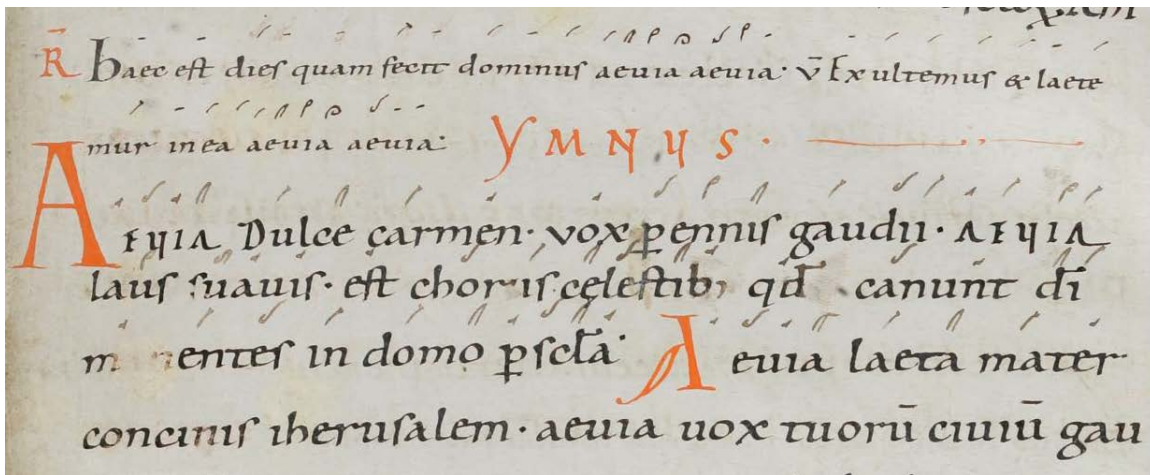 R̄ haec est dies quam fecit dominus aeuia aeuia· v̄ Exultemus & laete
mur in ea aeuia aeuia: YMNUS·
AEUIA Dulce carmen· vox ꝑennis gaudii· AEUIA
laus suauis· est choris cęlestib; qđ canunt di̅
entes in domo ꝑ scl̅a· A euia laeta mater
concinis iherusalem· aeuia uox tuorū ciuiū gau